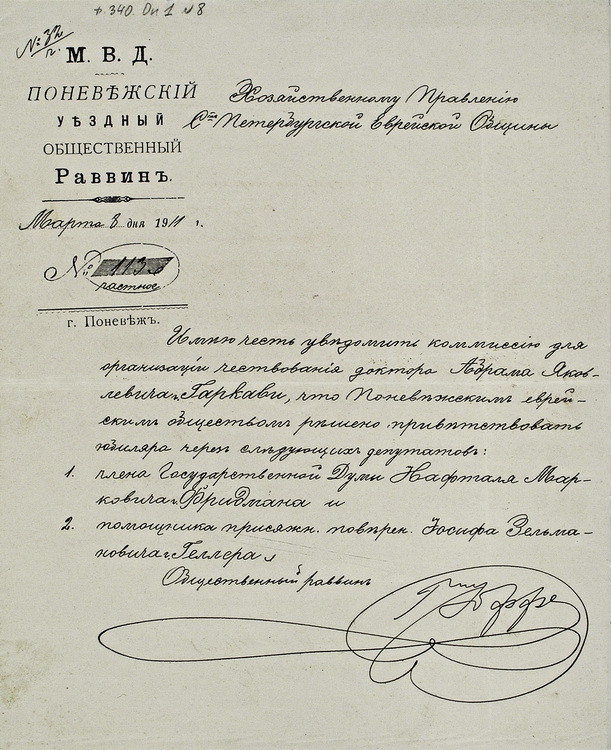 ф. 340. Оп 1 № 8
№ 32/г.
М. В. Д.
ПОНЕВѢЖСКІЙ
УѢЗДНЫЙ
ОБЩЕСТВЕННЫЙ
Раввинъ.
Марта 8 дня 1911 г.
№ 113
частное
г. Поневѣжъ.
Хозяйственному Правленію
С.-Петербургской Еврейской Общины
Имѣю честь увѣдомить коммиссію для
организаціи чествованія доктора Абрама Яков-
левича Гаркави, что Поневѣжскимъ еврей-
скимъ обществомъ рѣшено привѣтствовать
юбиляра черезъ слѣдующихъ депутатовъ:
1. члена Государственной Думы Нафталя Мар-
ковича Фридмана и
2. помощника присяжн. повѣрен. Іосифа Зельма-
новича Геллера.
Общественный раввинъ